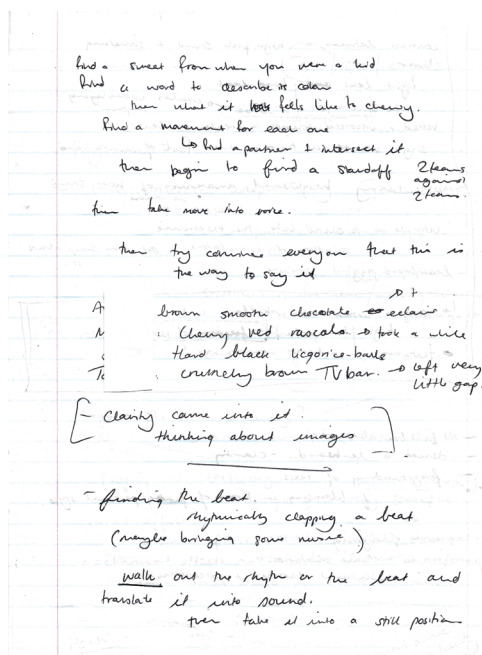 find a sweet from when you were a kid
find a word to describe its colour
then what it feels like to chewy.
find a movement for each one
↳ find a partner & intersect it
then begin to find a standoff 2 teams against 2 teams.
then take move into voice.
then try convince everyone that this is
the way to say it
A brown smooth chocolate eclairs
M : Chewy red rascals → took a while
Hard black licqorice-balls
T crunchy brown TV bar. → left very little gap.
[- Clarity came into it.
thinking about images]
- finding the beat.
rhythmically clapping a beat
(maybe bringing some music)
walk out the rhythm or the beat and
translate it into sound.
then take it into a still position